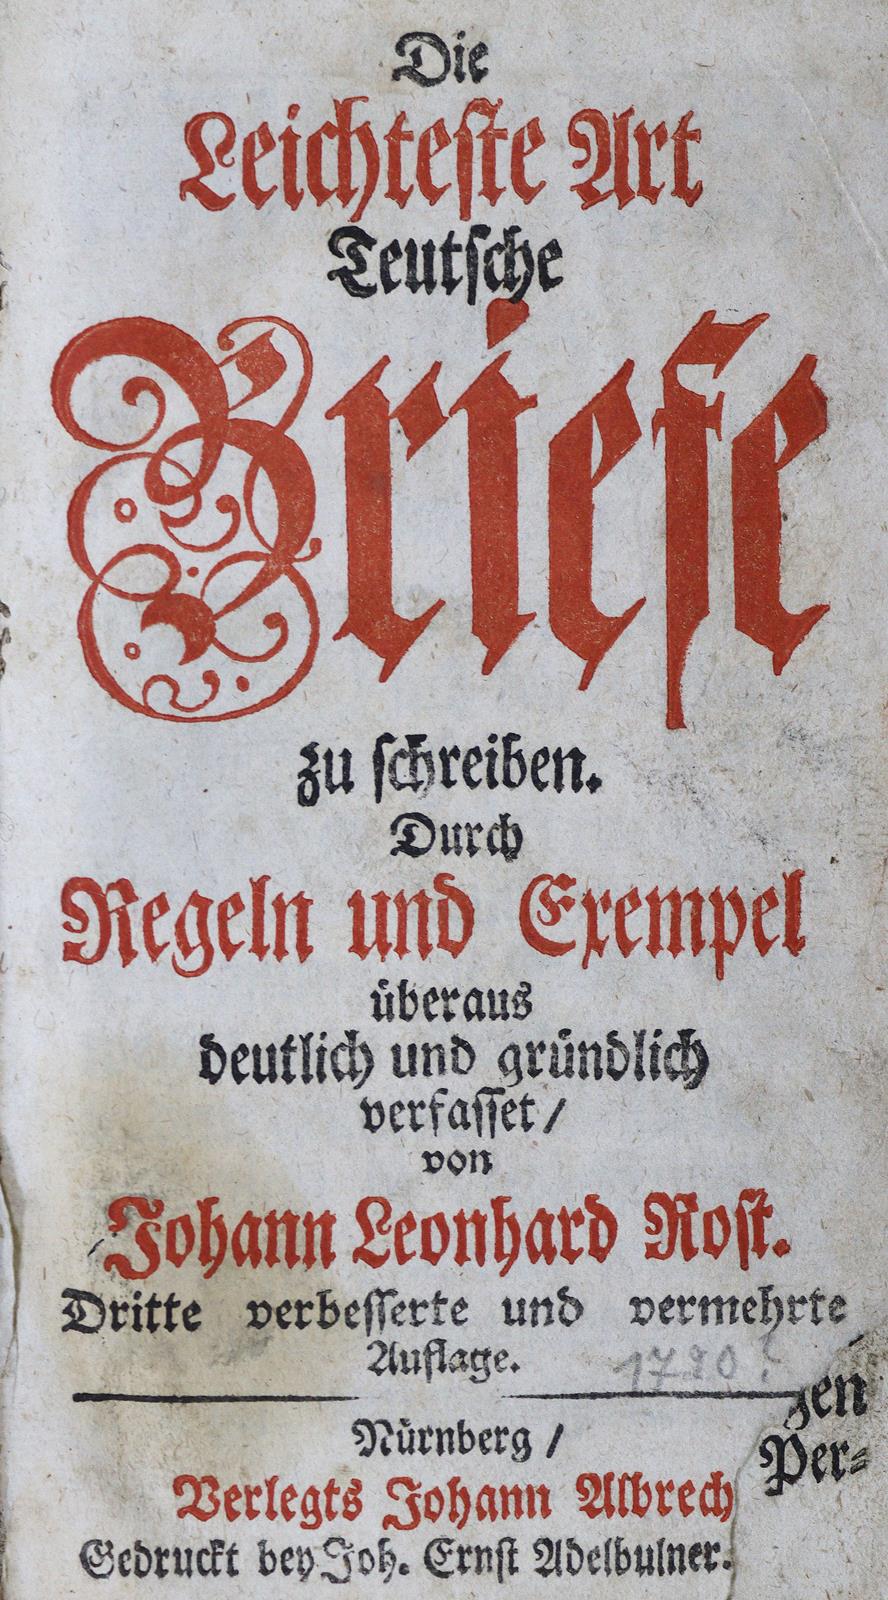 Die
Leichteste Art
Teutsche
Briefe
zu schreiben.
Durch
Regeln und Exempel
überaus
deutlich und gründlich
verfasset /
von
Johann Leonhard Rost.
Dritte verbesserte und vermehrte
Auflage.
Nürnberg /
Verlegts Johann Albrech
Gedruckt bey Joh. Ernst Adelbulner.
zen
Per=